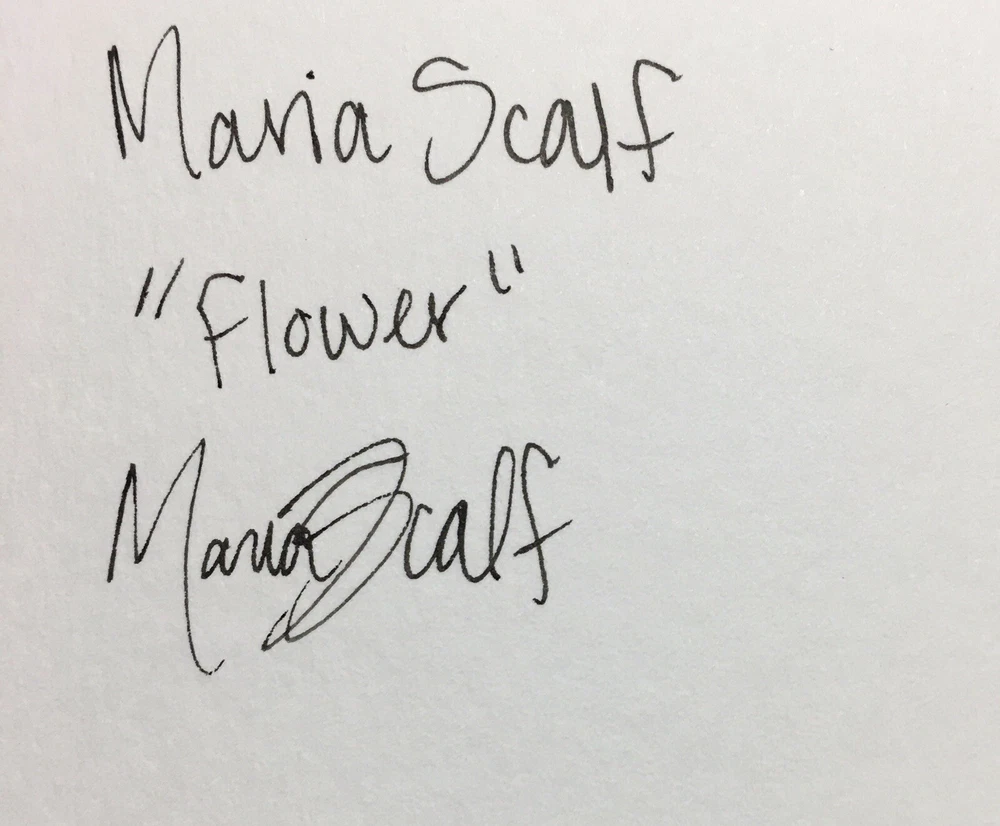 Maria Scalf
"Flower"
Maria Scalf